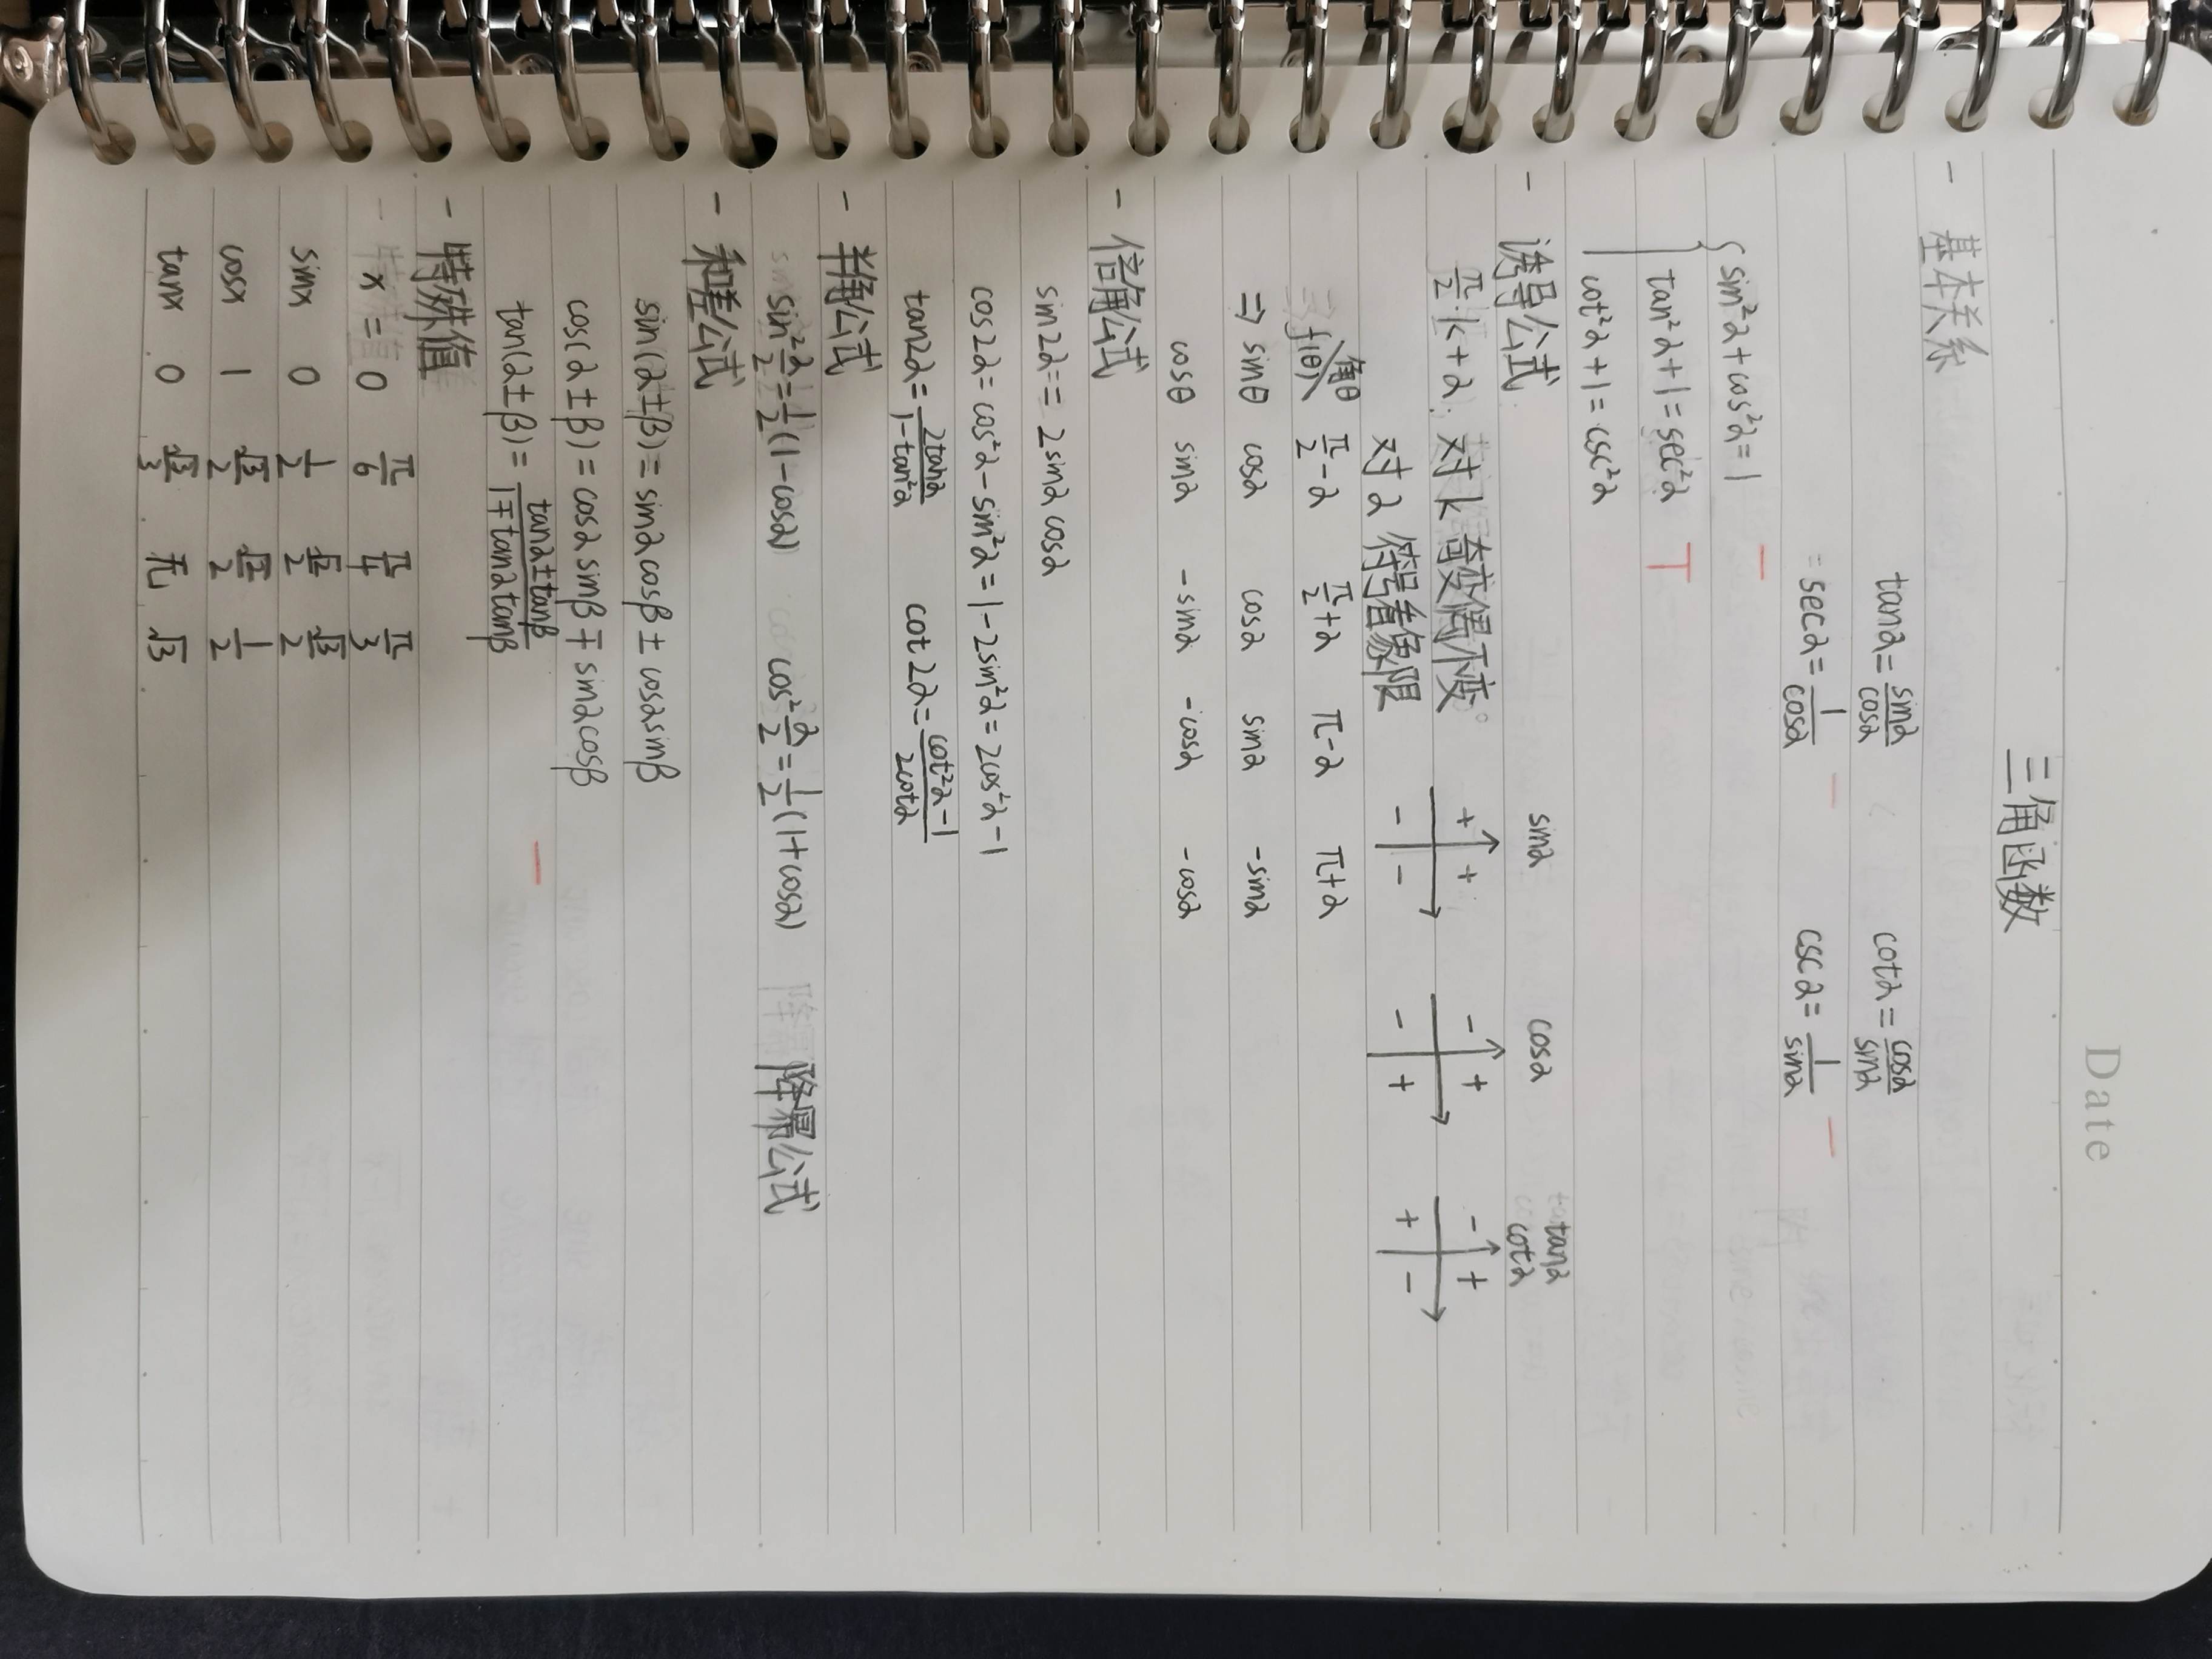 Date
三角函数
- 基本关系
tanα = sinα/cosα   cotα = cosα/sinα
secα = 1/cosα   cscα = 1/sinα
sin²α + cos²α = 1
tan²α + 1 = sec²α
cot²α + 1 = csc²α
- 诱导公式   sinα   cosα   tanα cotα
π/2·k + α: 对 k 奇变偶不变   + +   - +   - +
对 α 符号看象限   - -   - +   + -
f(θ)\角θ   π/2-α   π/2+α   π-α   π+α
⇒ sinθ   cosα   cosα   sinα   -sinα
cosθ   sinα   -sinα   -cosα   -cosα
- 倍角公式
sin2α == 2sinα cosα
cos2α = cos²α - sin²α = 1 - 2sin²α = 2cos²α - 1
tan2α = 2tanα/(1-tan²α)   cot2α = (cot²α-1)/2cotα
- 半角公式
sin²α/2 = 1/2(1-cosα)   cos²α/2 = 1/2(1+cosα)   降幂公式
- 和差公式
sin(α±β) = sinαcosβ ± cosαsinβ
cos(α±β) = cosαsinβ ∓ sinαcosβ
tan(α±β) = (tanα±tanβ)/(1∓tanαtanβ)
- 特殊值
x = 0   π/6   π/4   π/3
sinx   0   1/2   √2/2   √3/2
cosx   1   √3/2   √2/2   1/2
tanx   0   √3/3   无   √3